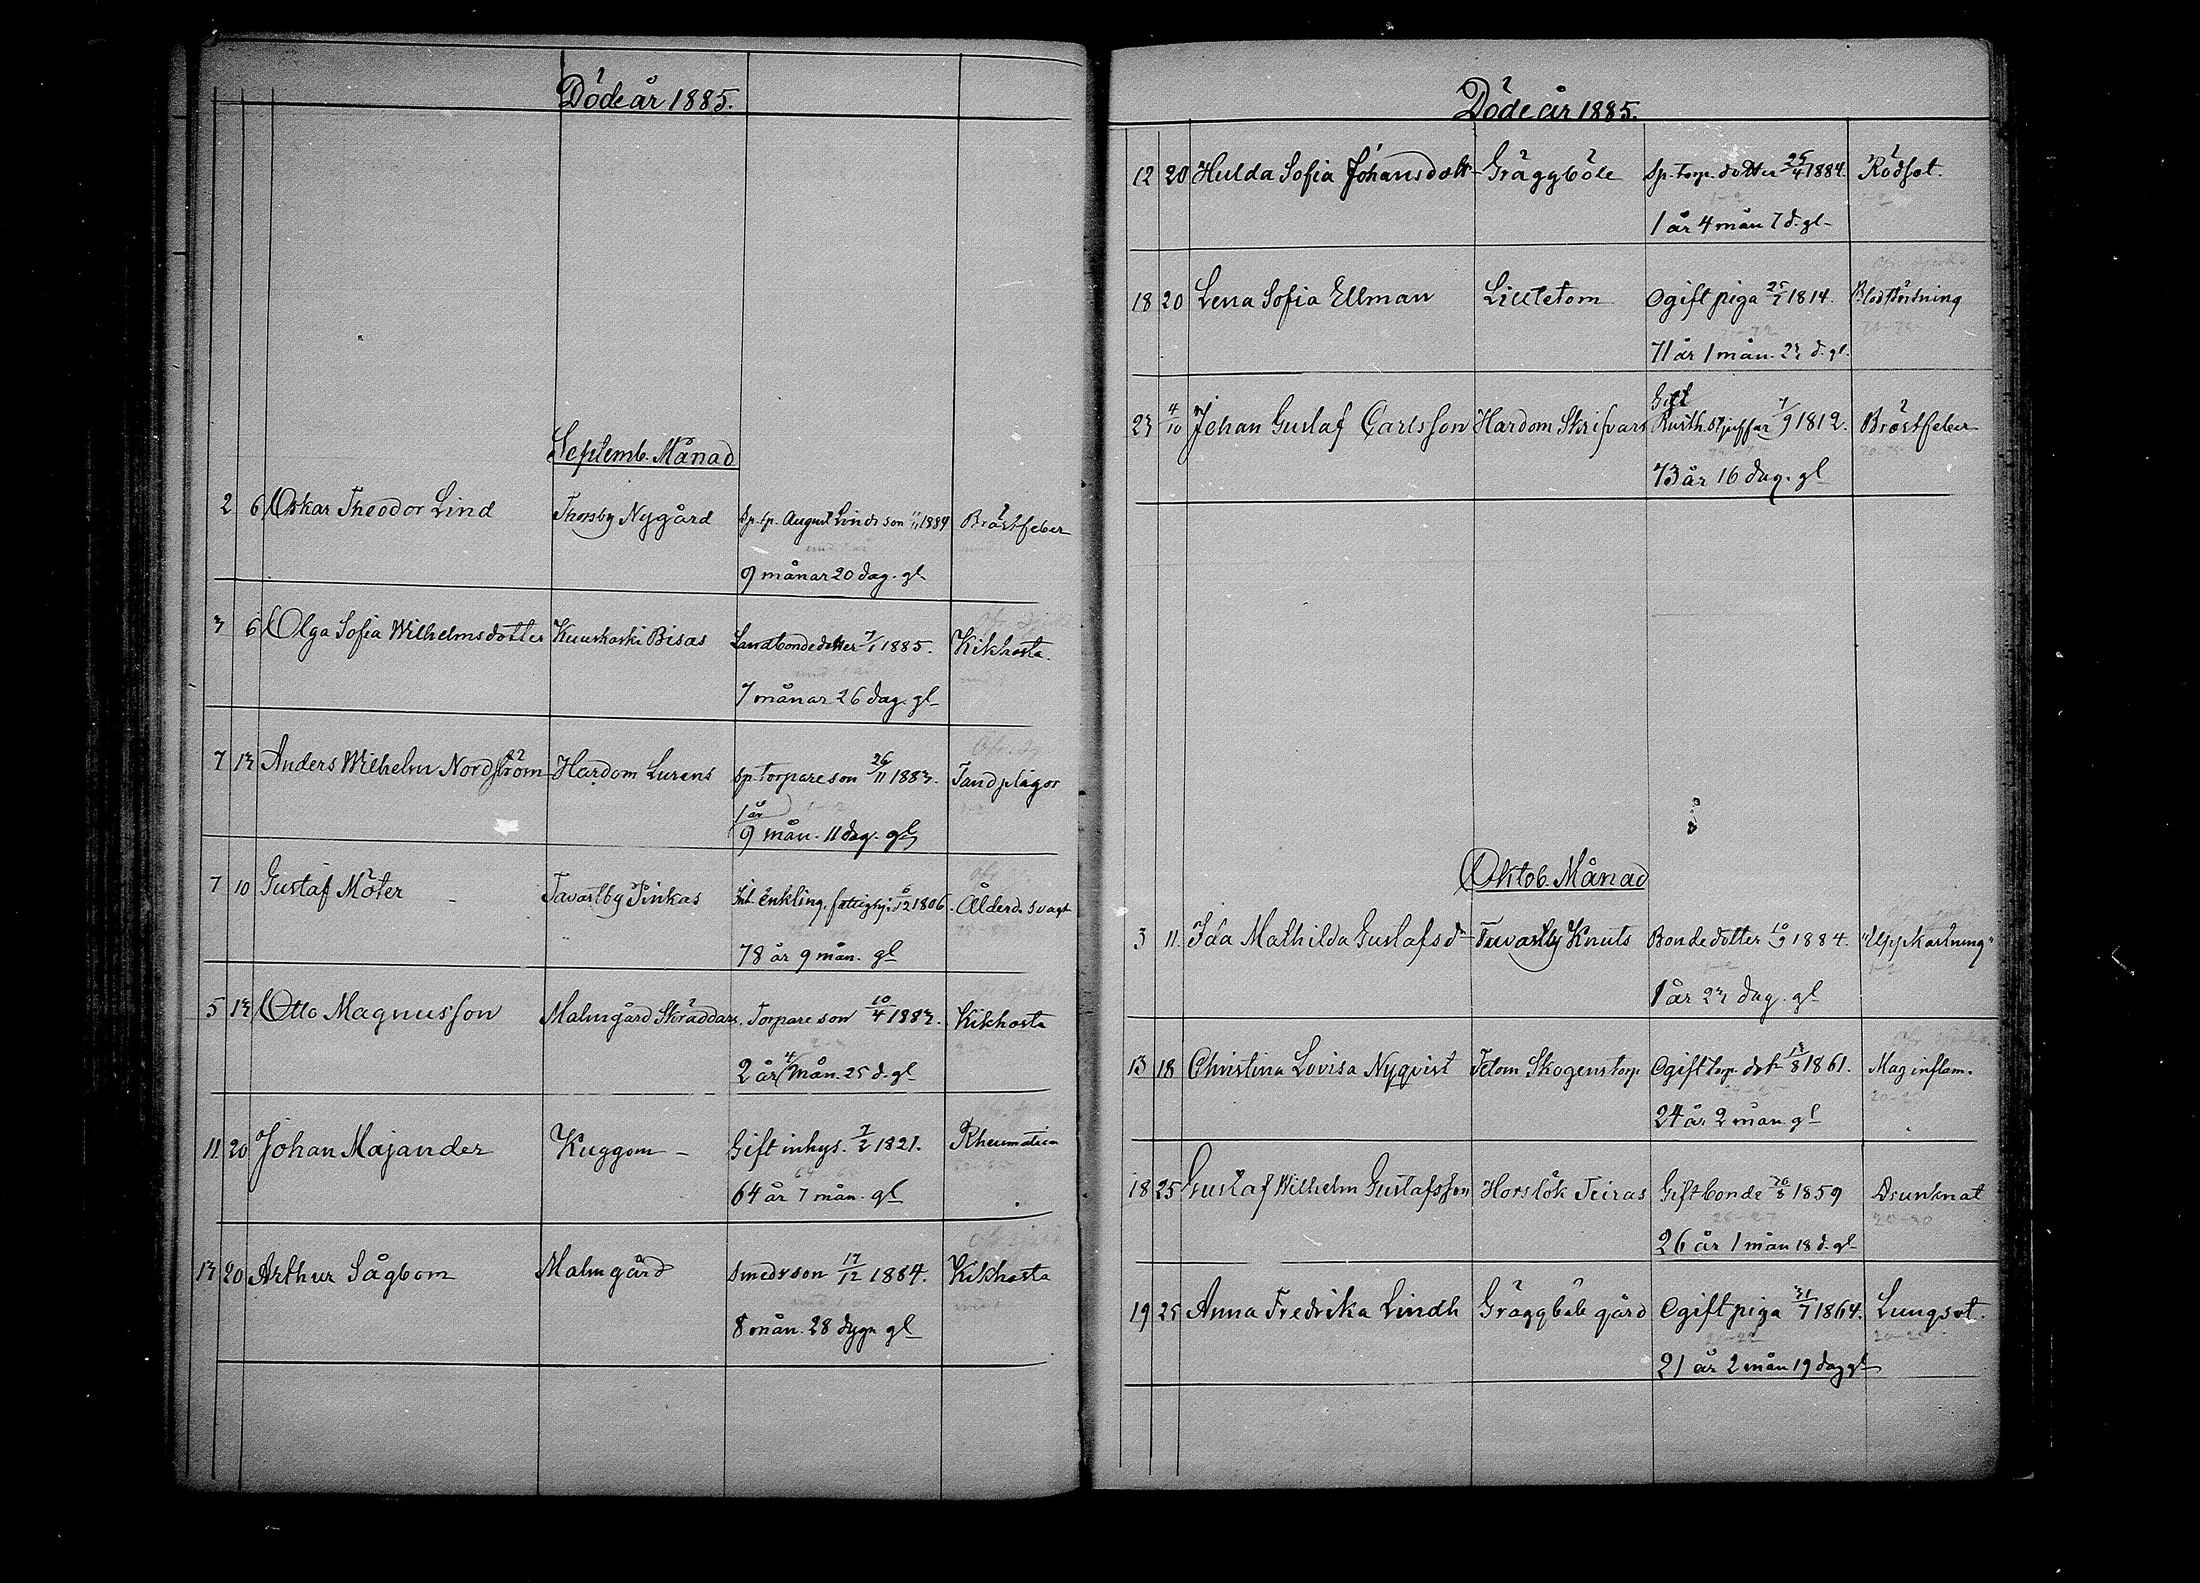 Döde år 1885.
Septemb. Månad
2 6 Oskar Theodor Lind Thorsby Nygård Sp. tp. August Linds son 1884 Bröstfeber
9 månar 20 dag. gl
3 6 Olga Sofia Wilhelmsdotter Kuuskoski Bisas Landbondedotter 7/1 1885. Kikhosta.
7 månar 26 dag. gl
7 13 Anders Wilhelm Nordström Hardom Lurens sp. torpareson 26/11 1883. Tandplågor
1 år
9 mån. 11 dag. gl
7 10 Gustaf Möter Tavastby Pinkas Inh. enkling, fattighj. 6/12 1806. Ålderd. svagh
78 år 9 mån. gl
5 13 Otto Magnusson Malmgård Skräddars. Torpareson 10/4 1883. Kikhosta
2 år 4 mån. 25 d. gl
11 20 Johan Majander Kuggom Gift inhys. 7/2 1821. Rheumatism
64 år 7 mån. gl
13 20 Arthur Sågbom Malmgård Smedsson 17/12 1884. Kikhosta
8 mån. 28 dygn gl
Döde år 1885.
12 20 Hulda Sofia Johansdott Gräggböle Sp. torp. dotter 25/4 1884. Rödsot.
1 år 4 mån 7 d. gl
18 20 Lena Sofia Ellman Lilltetom Ogift piga 25/7 1814. Blodstörtning
71 år 1 mån. 23 d. gl.
Gift
23 4/10 Johan Gustaf Carlsson Hardom Skrifvars Rusth. styffar 7/9 1812. Bröstfeber
73 år 16 dag. gl
Oktob. Månad
3 11. Ida Mathilda Gustafsd Tavastby Knuts Bondedotter 10/9 1884. "Uppkastning"
1 år 23 dag. gl
13 18 Christina Lovisa Nyqvist Tetom Skogenstorp Ogift torp. dott 13/8 1861. Mag inflam.
24 år 2 mån. gl
18 25 Gustaf Wilhelm Gustafsson Horslök Teiras Gift bonde 30/8 1859 Drunknat
26 år 1 mån 18 d. gl
19 25 Anna Fredrika Lindh Gräggböle gård Ogift piga 31/7 1864. Lungsot.
21 år 2 mån 19 dag gl